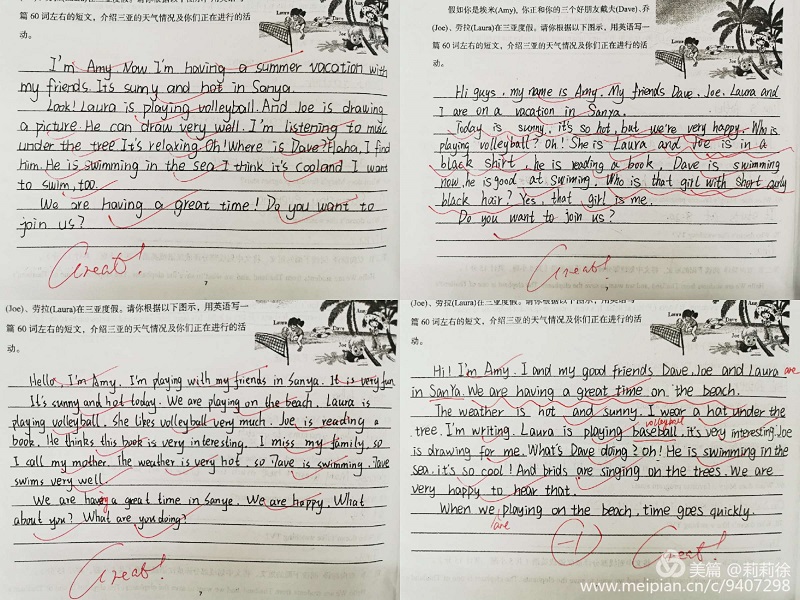 篇 60 词左右的短文，介绍三亚的天气情况及你们正在进行的活
动。
Laura
Dave
Joe
I'm Amy. Now I'm having a summer vacation with
my friends. It's sunny and hot in Sanya.
Look! Laura is playing volleyball. And Joe is drawing
a picture. He can draw very well. I'm listening to music
under the tree. It's relaxing. Oh! Where is Dave? Haha, I find
him. He is swimming in the sea. I think it's cool and I want
to swim, too.
We are having a great time! Do you want to
join us?
Great!
7
假如你是埃米(Amy), 你正和你的三个好朋友戴夫(Dave)、乔
(Joe)、劳拉(Laura)在三亚度假。请你根据以下图示，用英语写一
篇 60 词左右的短文，介绍三亚的天气情况及你们正在进行的活
动。
Laura
Dave
Joe
Hi guys, my name is Amy. My friends Dave, Joe, Laura and
I are on a vacation in Sanya.
Today is sunny, it's so hot, but we're very happy. Who is
playing volleyball? Oh! She is Laura and Joe is in a
black shirt, he is reading a book. Dave is swimming
now, he is good at swiming. Who is that girl with short curly
black hair? Yes, that girl is me.
Do you want to join us?
Great!
(Joe)、劳拉(Laura)在三亚度假。请你根据以下图示，用英语写一
篇 60 词左右的短文，介绍三亚的天气情况及你们正在进行的活
动。
Laura
Dave
Joe
Hello, I'm Amy. I'm playing with my friends in Sanya. It is very fun.
It's sunny and hot today. We are playing on the beach. Laura is
playing volleyball. She likes volleyball very much. Joe is reading a
book. He thinks this book is very interesting. I miss my family, so
I call my mother. The weather is very hot, so Dave is swimming. Dave
swims very well.
We are having a great time in Sanye. We are happy. What
about you? What are you doing?
Great!
7
(Joe)、劳拉(Laura)在三亚度假。请你根据以下图示，用英语写一
篇 60 词左右的短文，介绍三亚的天气情况及你们正在进行的活
动。
Laura
Dave
Joe
Hi! I'm Amy. I and my good friends Dave, Joe and Laura are
in SanYa. We are having a great time on the beach.
The weather is hot and sunny. I wear a hat under the
tree. I'm writing. Laura is playing baseball, it's very interesting. Joe
volleyball
is drawing for me. What's Dave doing? Oh! He is swimming in the
sea, it's so cool! And brids are singing on the trees. We are
very happy to hear that.
When we playing on the beach, time goes quickly.
are
-1
Great!
美篇 @莉莉徐
www.meipian.cn/c/9407298